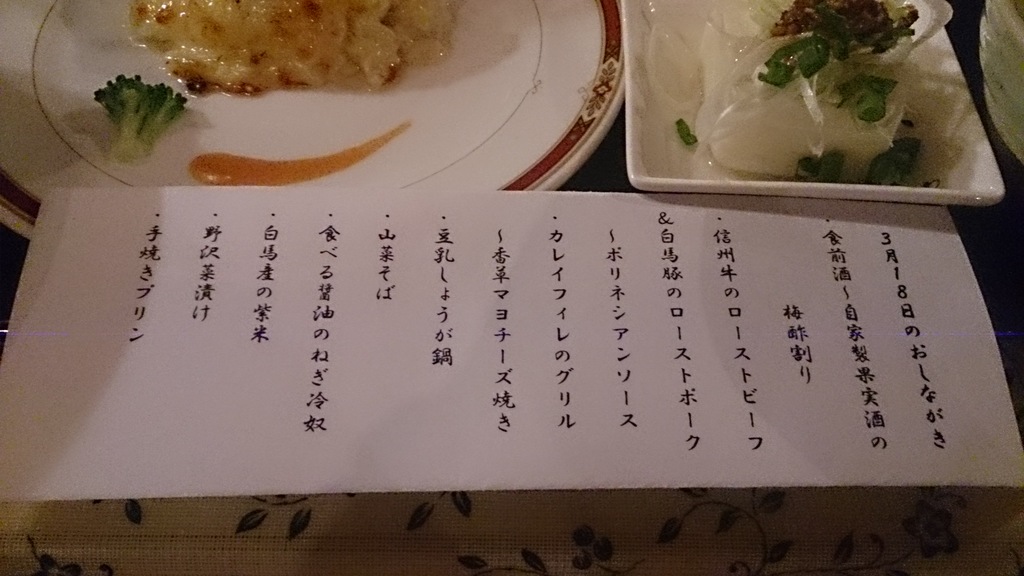 3月18日のおしながき
・食前酒～自家製果実酒の
梅酢割り
・信州牛のローストビーフ
&白馬豚のローストポーク
～ポリネシアンソース
・カレイフィレのグリル
～香草マヨチーズ焼き
・豆乳しょうが鍋
・山菜そば
・食べる醤油のねぎ冷奴
・白馬産の紫米
・野沢菜漬け
・手焼きプリン